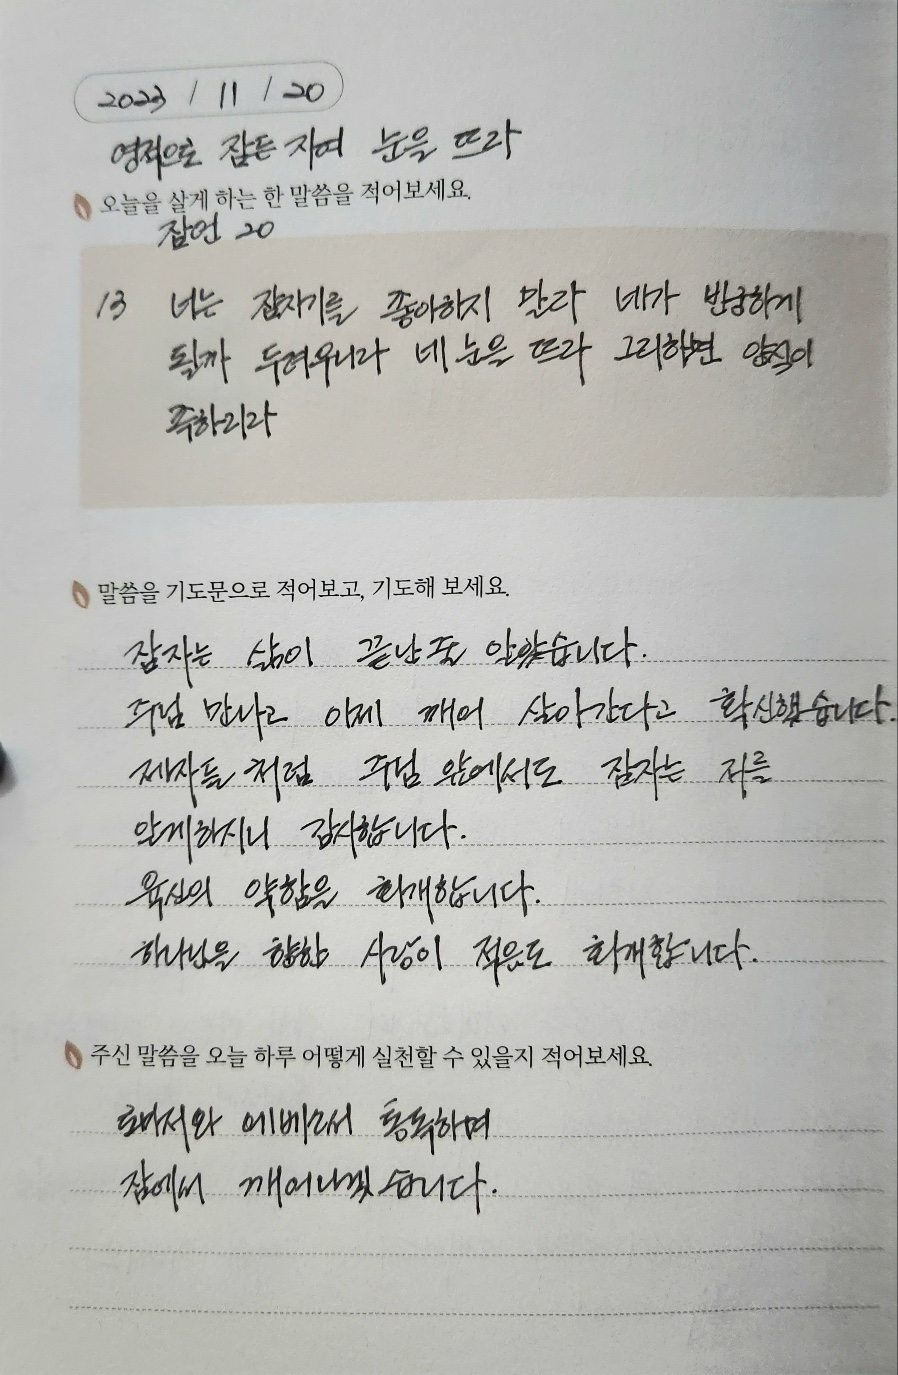 2023 / 11 / 20
영적으로 잠든 자여 눈을 뜨라
오늘을 살게 하는 한 말씀을 적어보세요.
잠언 20
13 너는 잠자기를 좋아하지 말라 네가 빈궁하게
될까 두려우니라 네 눈을 뜨라 그리하면 양식이
족하리라
말씀을 기도문으로 적어보고, 기도해 보세요.
잠자는 삶이 끝난 줄 알았습니다.
주님 만나고 이제 깨어 살아간다고 확신했습니다.
제자들처럼 주님 앞에서도 잠자는 자를
알게하시니 감사합니다.
육신의 약함을 회개합니다.
하나님을 향한 사랑이 적음도 회개합니다.
주신 말씀을 오늘 하루 어떻게 실천할 수 있을지 적어보세요.
로마서와 에베소서 통독하며
잠에서 깨어나겠습니다.